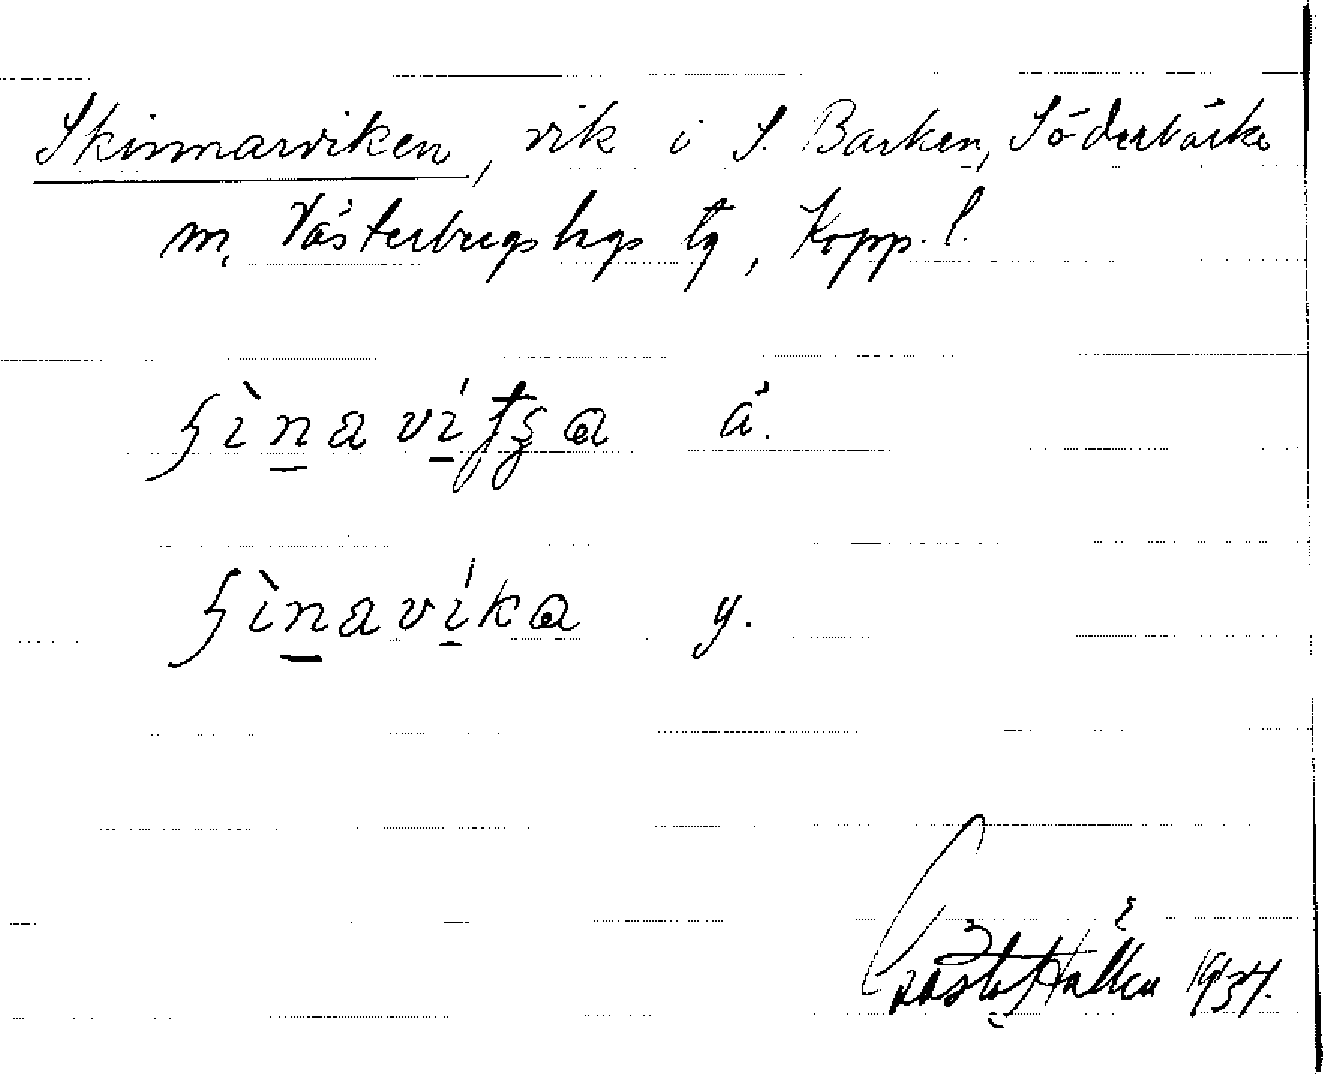 Skinnarviken, vik i S. Barken, Söderbärke
m, Västerbergslags tg, Kopp. l.
ʃìnavíƫʒa ä.
ʃìnavíka y.
Gösta Hallén 1934.